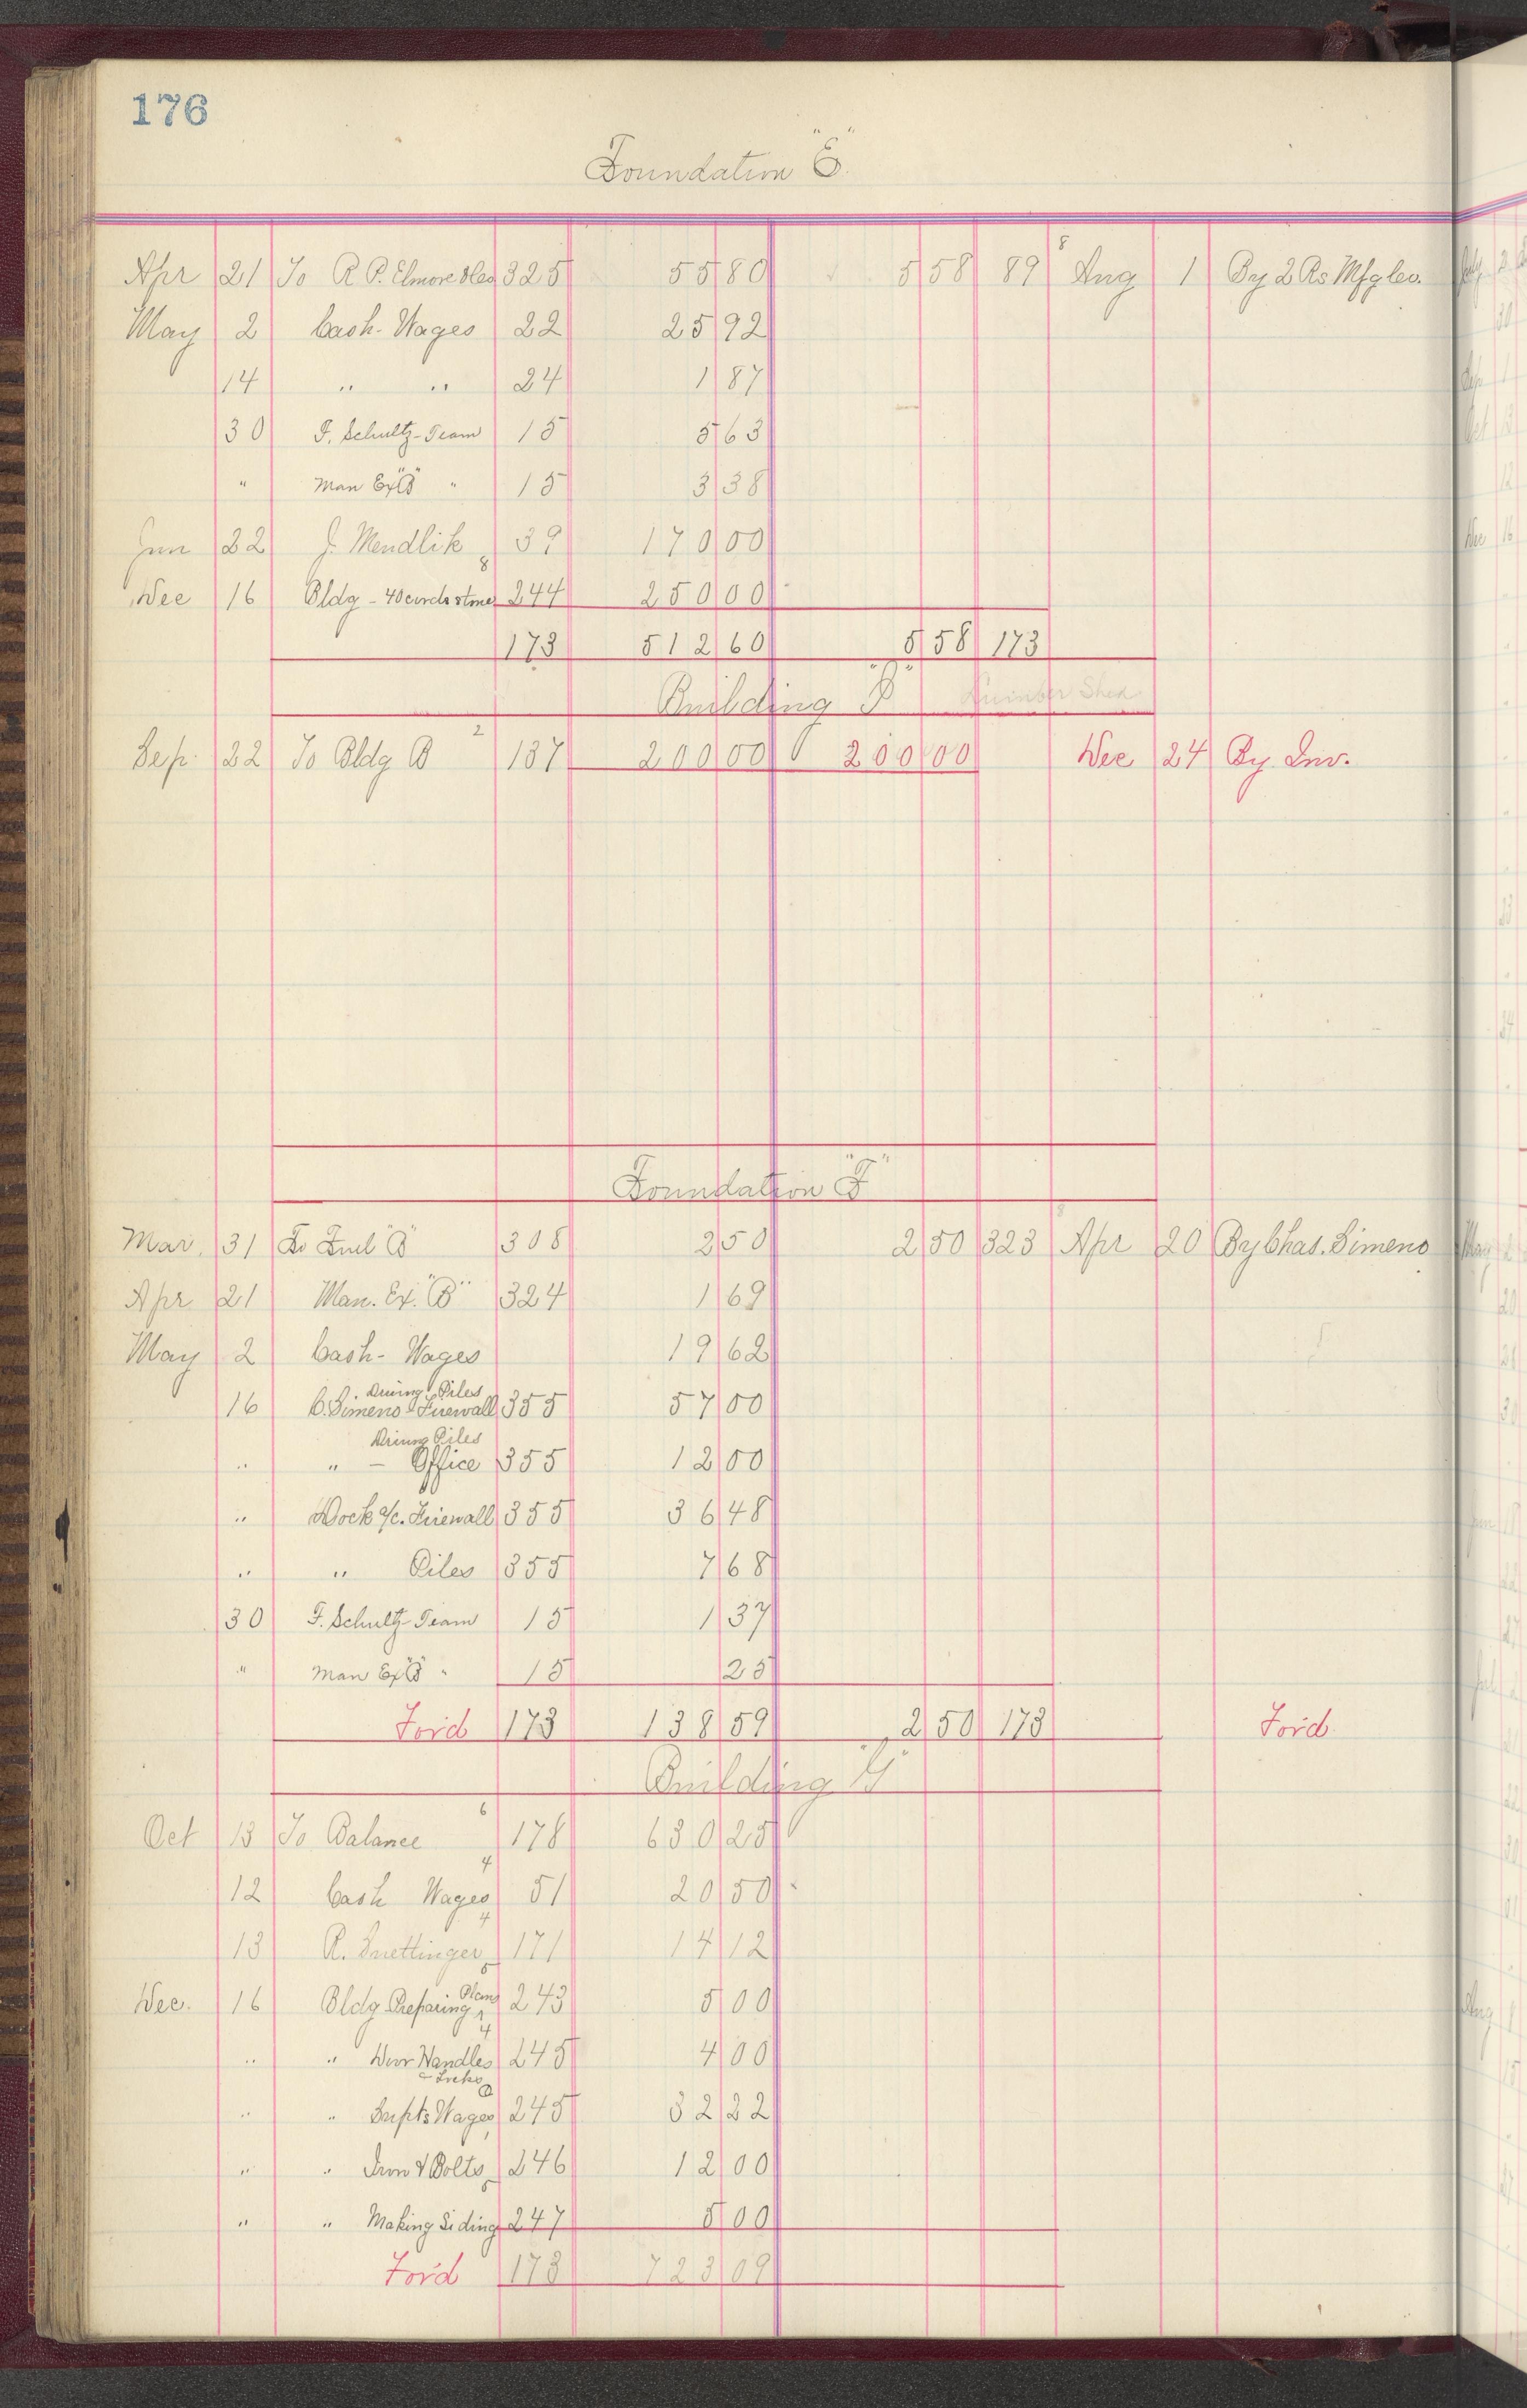 176
Foundation "E"
Apr 21 To R. P. Elmore & Co 325 55 80 5 58 89 8 Aug 1 By 2 Rs Mfg Co.
May 2 Cash - Wages 22 25 92
14 " " 24 1 87
30 F. Schultz - Team 15 5 63
" Man Ex "B" " 15 3 38
Jun 22 J. Mendlik 8 39 170 00
Dec 16 Bldg - 40 cords stone 244 250 00
173 512 60 5 58 173
Building "P" Lumber Shed
Sep. 22 To Bldg B 2 187 200 00 200 00 Dec 24 By Inv.
Foundation "F"
Mar. 31 To Fuel "B" 308 2 50 2 50 323 8 Apr 20 By Chas. Simeno
Apr 21 Man. Ex. "B" 324 1 69
May 2 Cash - Wages 19 62
Driving Piles
16 C. Simeno - Firewall 355 57 00
Driving Piles
" " - Office 355 12 00
" Dock a/c. Firewall 355 36 48
" " Piles 355 7 68
30 F. Schultz - Team 15 1 37
" Man Ex "B" " 15 25
For'd 173 138 59 2 50 173 For'd
Building "G"
Oct 13 To Balance 6 178 630 25
12 Cash Wages 4 51 20 50
13 R. Suettinger 4 171 14 12
Dec. 16 Bldg Preparing Plans 5 243 5 00
" " Door Handles 4 245 4 00
& Locks
" " Supts Wages 245 32 22
" " Iron & Bolts 246 12 00
" " Making Siding 5 247 5 00
For'd 173 723 09